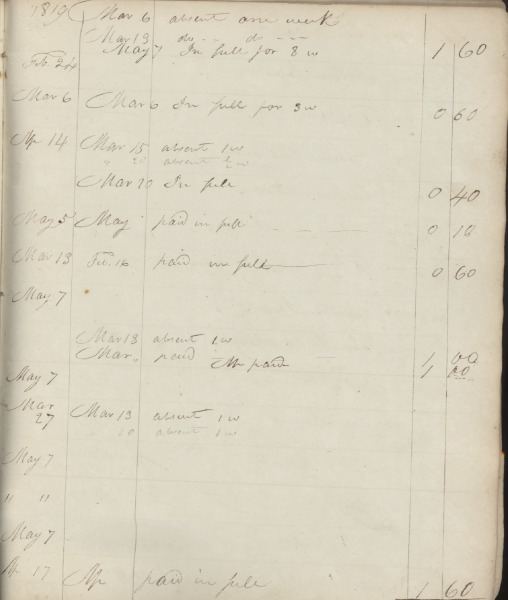 1819 Mar 6 absent one week
Mar 13 do - - do - - -
May 7 In full for 8 w 1 60
Feb. 24
Mar 6 Mar 6 In full for 3 w 0 60
Ap 14 Mar 15 absent 1 w
" 20 absent ½ w
Mar 20 In full 0 40
May 5 May paid in full 0 10
Mar 13 Feb. 16 paid in full 0 60
May 7
Mar 13 absent 1 w
Mar " paid Ap paid 1 00
May 7 1
Mar 27 Mar 13 absent 1 w
20 absent 1 w
May 7
" "
May 7
Ap 17 Ap paid in full 1 60